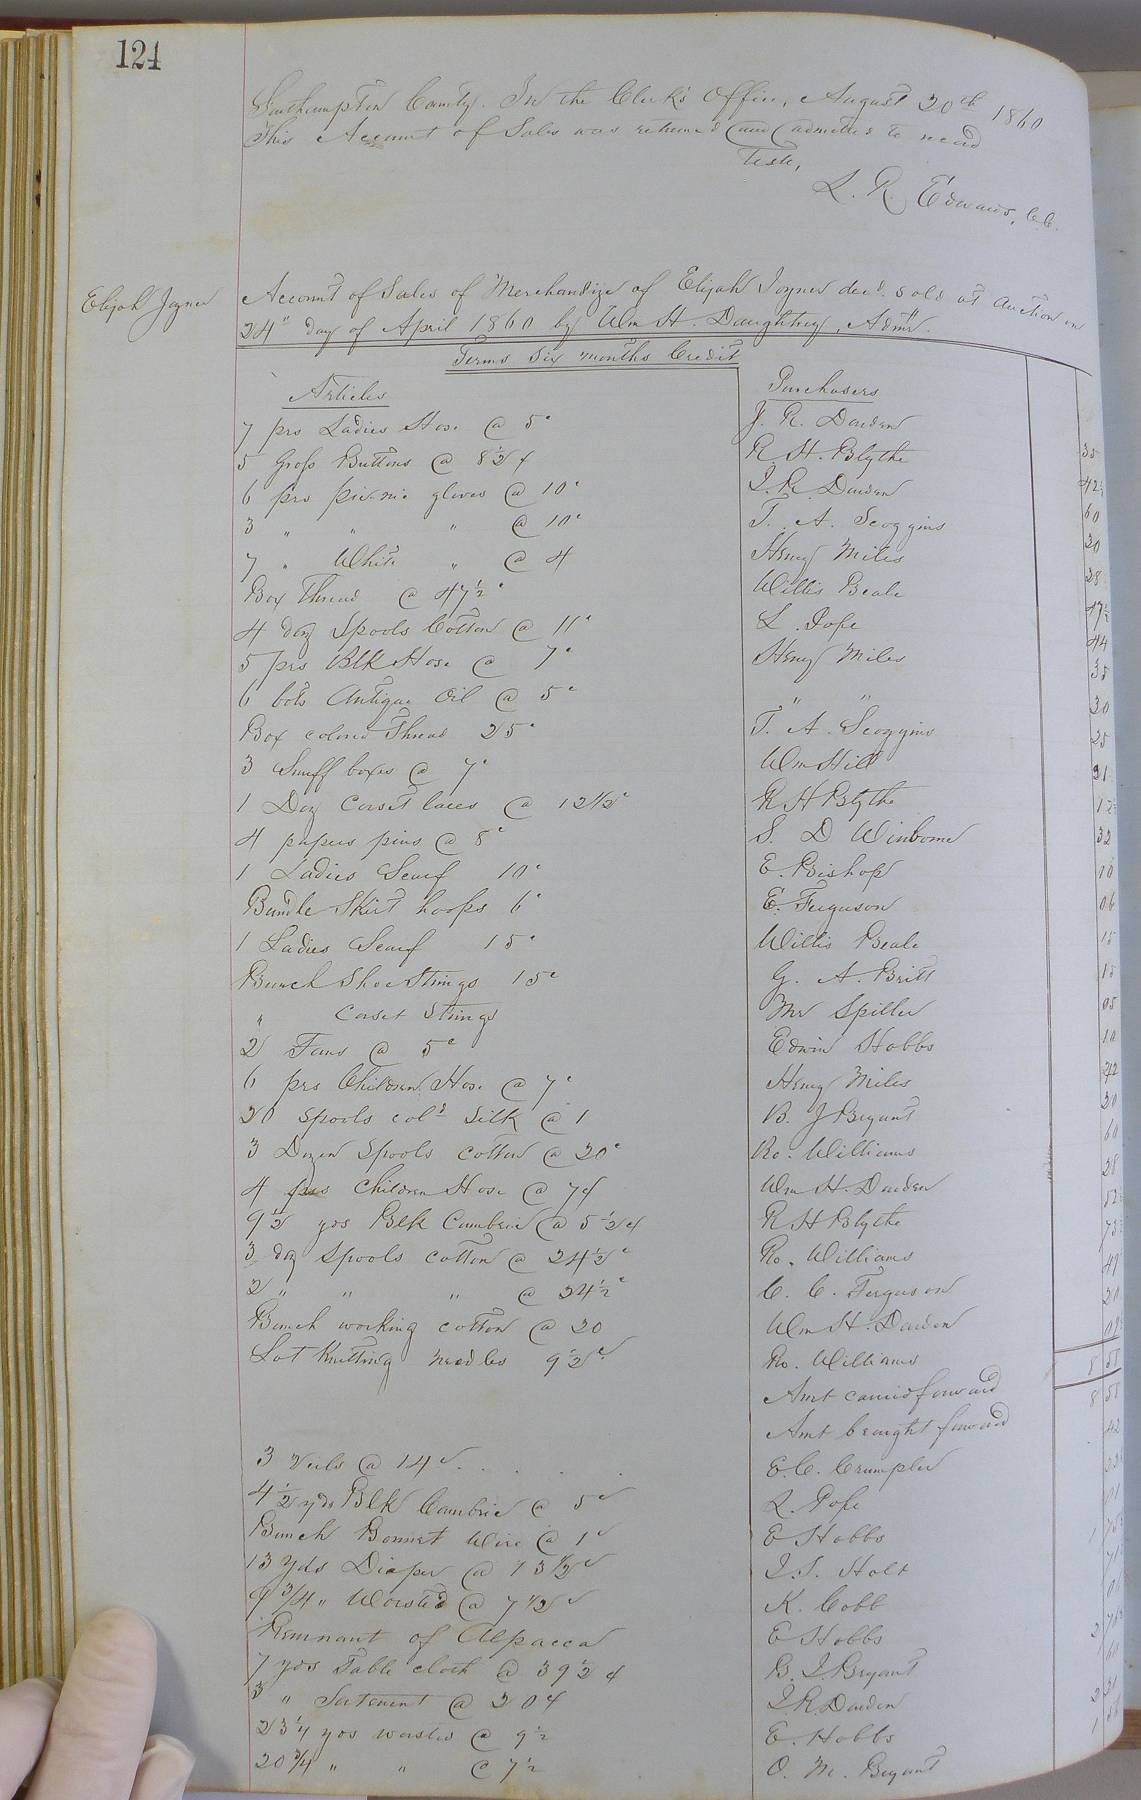 124
Southampton County. In the Clerk's Office, August 20th 1860
This Account of Sales was returned and admitted to record
Teste,
L. R. Edwards, C.C.
Elijah Joyner
Account of Sales of Merchandize of Elijah Joyner decd. sold at auction on
24" day of April 1860 by Wm H. Daughtrey, Admr.
Terms Six months Credit
Articles Purchasers
7 prs Ladies Hose @ 5c J. R. Darden 35
5 Gross Buttons @ 8½ ¢ R. H. Blythe 42½
6 prs pic-nic gloves @ 10c J. R. Darden 60
3 " " " @ 10c T. A. Scoggins 30
7 " White " @ 4 Henry Miles 28
Box Thread @ 47½c Willis Beale 47½
4 doz Spools Cotton @ 11c L. Pope 44
5 prs Blk Hose @ 7c Henry Miles 35
6 bots Antique Oil @ 5c " " 30
Box colored Thread 25c T. A. Scoggins 25
3 Snuff boxes @ 7c Wm Hill 21
1 Doz Corset laces @ 12½c R H Blythe 12½
4 papers pins @ 8c S. D Winborne 32
1 Ladies Scarf 10c E. Bishop 10
Bundle Skirt hoops 6c E. Ferguson 06
1 Ladies Scarf 15c Willis Beale 15
Bunch Shoe Strings 15c G. A. Britt 15
" Corset Strings Mr Spiller 05
2 Fans @ 5c Edwin Hobbs 10
6 prs Children Hose @ 7c Henry Miles 42
20 Spools cold Silk @ 1 B. J Bryant 20
3 Dozen Spools cotton @ 20c Ro. Williams 60
4 prs Children Hose @ 7¢ Wm H. Darden 28
9½ yds Blk Cambric @ 5½ ¢ R H Blythe 52
3 doz Spools cotton @ 24½c Ro. Williams 73½
2 " " " @ 24½c C. C. Ferguson 49
Bunch working cotton @ 20 Wm H. Darden 20
Lot Knitting needles 9½c Ro. Williams 09½
Amt carried forward 8 58
Amt brought forward 8 58
3 Veils @ 14c E. C. Crumpler 42
4½ yds Blk Cambric @ 5c L. Pope
Bunch Bonnet Wire @ 1c E Hobbs 01
13 yds Diaper @ 13½c J. S. Holt 1 75½
9 3/4 " Worsted @ 7½c K. Cobb
Remnant of Alpacca E Hobbs
7 yds Table cloth @ 39½ ¢ B. J. Bryant 2 76½
3 " Sateinent @ 20¢ J. R. Darden 60
23¼ yds worsted @ 9½ E. Hobbs 2
20 3/4 " " @ 7½ O. M. Bryant 1